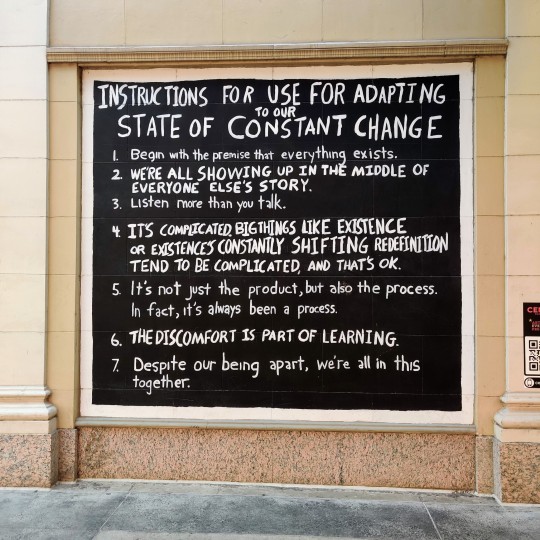 INSTRUCTIONS FOR USE FOR ADAPTING
TO OUR
STATE OF CONSTANT CHANGE
1. Begin with the premise that everything exists.
2. WE'RE ALL SHOWING UP IN THE MIDDLE OF
EVERYONE ELSE'S STORY.
3. Listen more than you talk.
4. IT'S COMPLICATED, BIG THINGS LIKE EXISTENCE
OR EXISTENCE'S CONSTANTLY SHIFTING REDEFINITION
TEND TO BE COMPLICATED, AND THAT'S OK.
5. It's not just the product, but also the process.
In fact, it's always been a process.
6. THE DISCOMFORT IS PART OF LEARNING.
7. Despite our being apart, we're all in this
together.